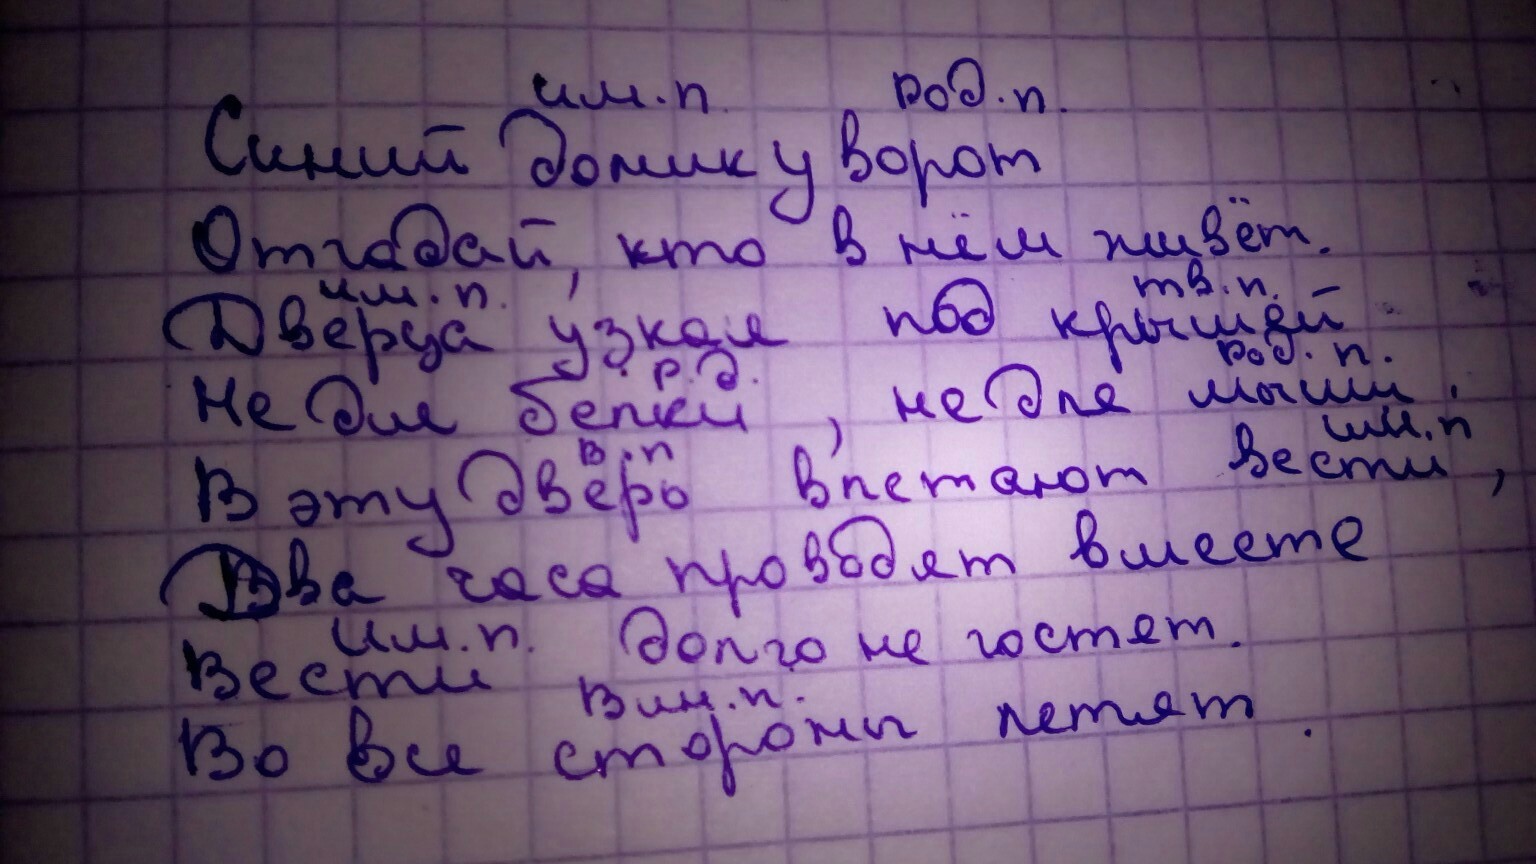 им.п. род.п.
Синий домик у ворот
Отгадай, кто в нём живёт.
им.п. тв.п.
Дверца узкая под крышей
р.д. род.п.
Не для белки, не для мыши.
в.п им.п
В эту дверь влетают вести,
Два часа проводят вместе
им.п.
Вести долго не гостят.
Вин.п.
Во все стороны летят.